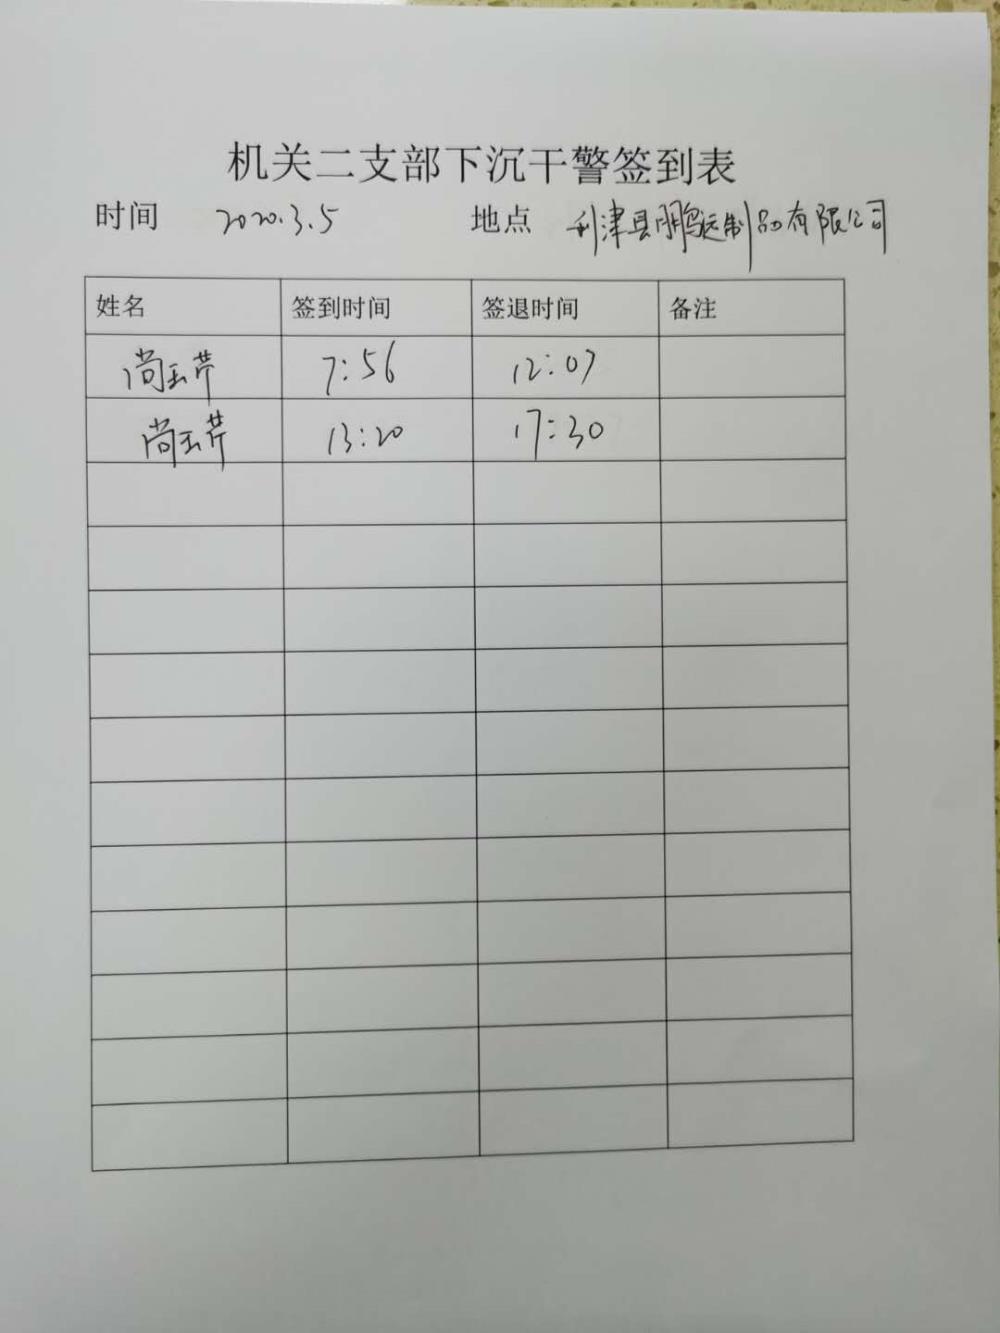 机关二支部下沉干警签到表
时间 2020.3.5 地点 利津县鹏远制品有限公司
姓名 签到时间 签退时间 备注
尚玉芹 7:56 12:07
尚玉芹 13:20 17:30